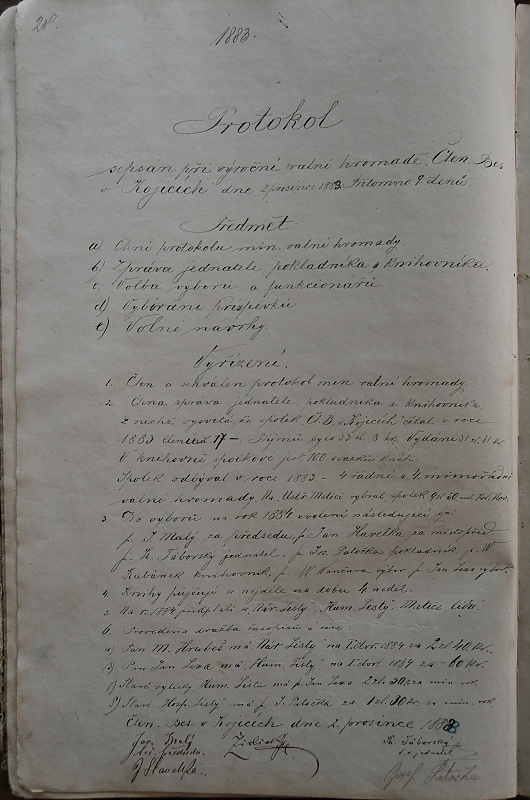 1883.
Protokol
sepsán při výroční valní hromadě Čten. Bes
v Kojicích dne 2 prosince 1883 Přítomno 9 členů.
Předmět
a) Čtení protokolu min. valní hromady.
b) Zpráva jednatele pokladníka a knihovníka.
c) Volba výboru a funkcionářů
d) Vybírání příspěvků
e) Volné návrhy.
Vyřízení.
1. Čten a schválen protokol min valní hromady.
2. Čtena zpráva jednatele, pokladníka a knihovníka,
z nichž vysvítá, že spolek Č. B. v Kojicích čítal v roce
1883 členů 17 – Příjmů bylo 33 zl. 8 kr. Vydání 31 zl. 41 kr
V knihovně spolkové jest 100 svazků knih.
Spolek odbýval v roce 1883 – 4 řádné a 4 mimořádné
valné hromady. Na Ústř. Matici vybral spolek
3. Do výboru na rok 1884 zvoleni následující pp:
p. J. Malý za předsedu, p. Jan Havelka za místopřed
p. Fr. Táborský jednatel, p. Jos. Patočka pokladník, p. W.
Kubánek knihovník, p. W. Wančura výbor p. Jan Lexa výbor.
4. Knihy půjčují se nejdéle na dobu 4 neděl.
5. Na r. 1884 předplatí se „Nár. Listy" „Hum. Listy". Matice lidu
6. Provedena dražba časopisů a sice:
a) Pan M. Hrubeš má Nár. Listy na I. čtvr. 1884 za 2 zl 40 kr.
b) Pan Jan Lexa má „Hum. Listy" na I. čtvrt. 1884 za – 60 kr.
Staré výtisky Hum. Listů má p. Jan Lexa za min. rok.
Staré „Hosp. Listy" má p. J. Patočka za 1 zl. 30 kr za min. rok
Čten. Bes. v Kojicích dne 2. prosince 1883
Jos. Malý
t. č. předseda.
Fr. Táborský
t. č. jednatel
J Havelka.
Josef Patočka